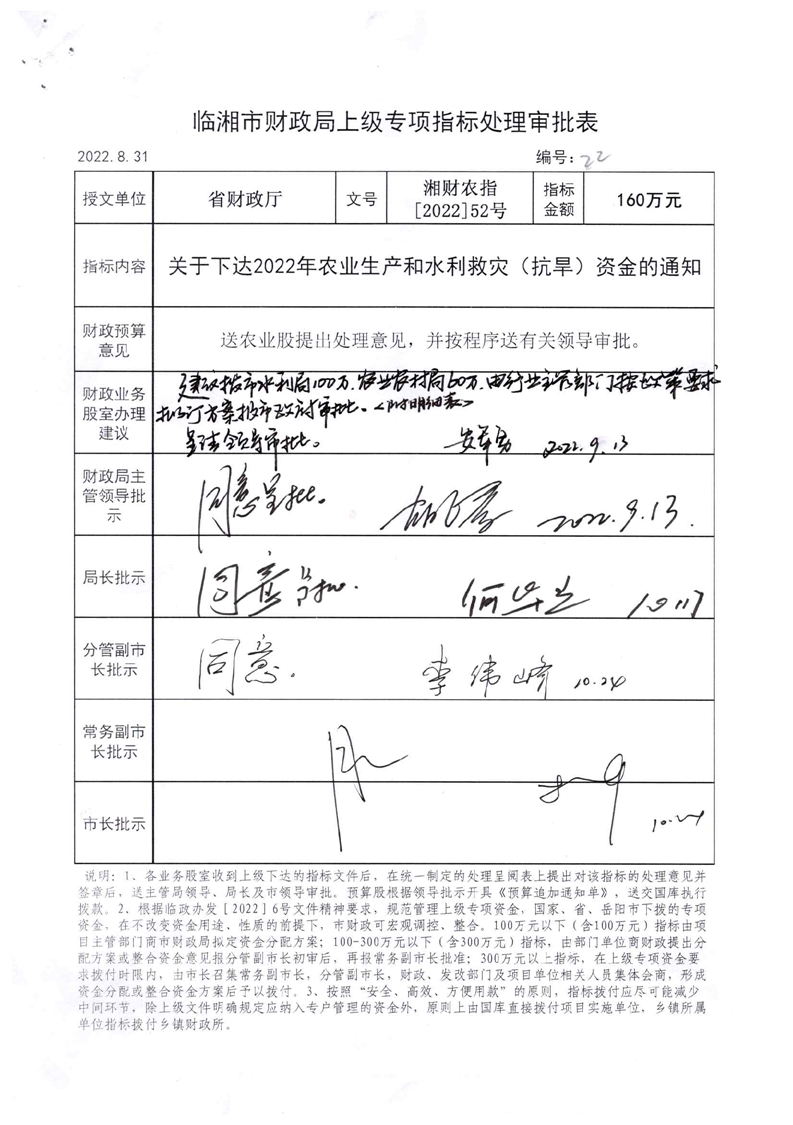 临湘市财政局上级专项指标处理审批表
2022.8.31
编号：22
授文单位
省财政厅
文号
湘财农指
[2022]52号
指标
金额
160万元
指标内容
关于下达2022年农业生产和水利救灾（抗旱）资金的通知
财政预算
意见
送农业股提出处理意见，并按程序送有关领导审批。
财政业务
股室办理
建议
建议指市水利局100万.农业农村局60万.由行业主管部门按政策要求
拟订方案报市政府审批。（附明细表）
呈请领导审批。
2022.9.13
财政局主
管领导批
示
同意呈批。
2022.9.13.
局长批示
同意
10.17
分管副市
长批示
同意.
李伟峰 10.24
常务副市
长批示
市长批示
说明：1、各业务股室收到上级下达的指标文件后，在统一制定的处理呈阅表上提出对该指标的处理意见并
签章后，送主管局领导、局长及市领导审批。预算股根据领导批示开具《预算追加通知单》，送交国库执行
拨款。2、根据临政办发[2022]6号文件精神要求，规范管理上级专项资金，国家、省、岳阳市下拨的专项
资金，在不改变资金用途、性质的前提下，市财政可宏观调控、整合。100万元以下（含100万元）指标由项
目主管部门商市财政局拟定资金分配方案；100-300万元以下（含300万元）指标，由部门单位商财政提出分
配方案或整合资金意见报分管副市长初审后，再报常务副市长批准；300万元以上指标，在上级专项资金要
求拨付时限内，由市长召集常务副市长，分管副市长，财政、发改部门及项目单位相关人员集体会商，形成
资金分配或整合资金方案后予以拨付。3、按照“安全、高效、方便用款”的原则，指标拨付应尽可能减少
中间环节，除上级文件明确规定应纳入专户管理的资金外，原则上由国库直接拨付项目实施单位，乡镇所属
单位指标拨付乡镇财政所。